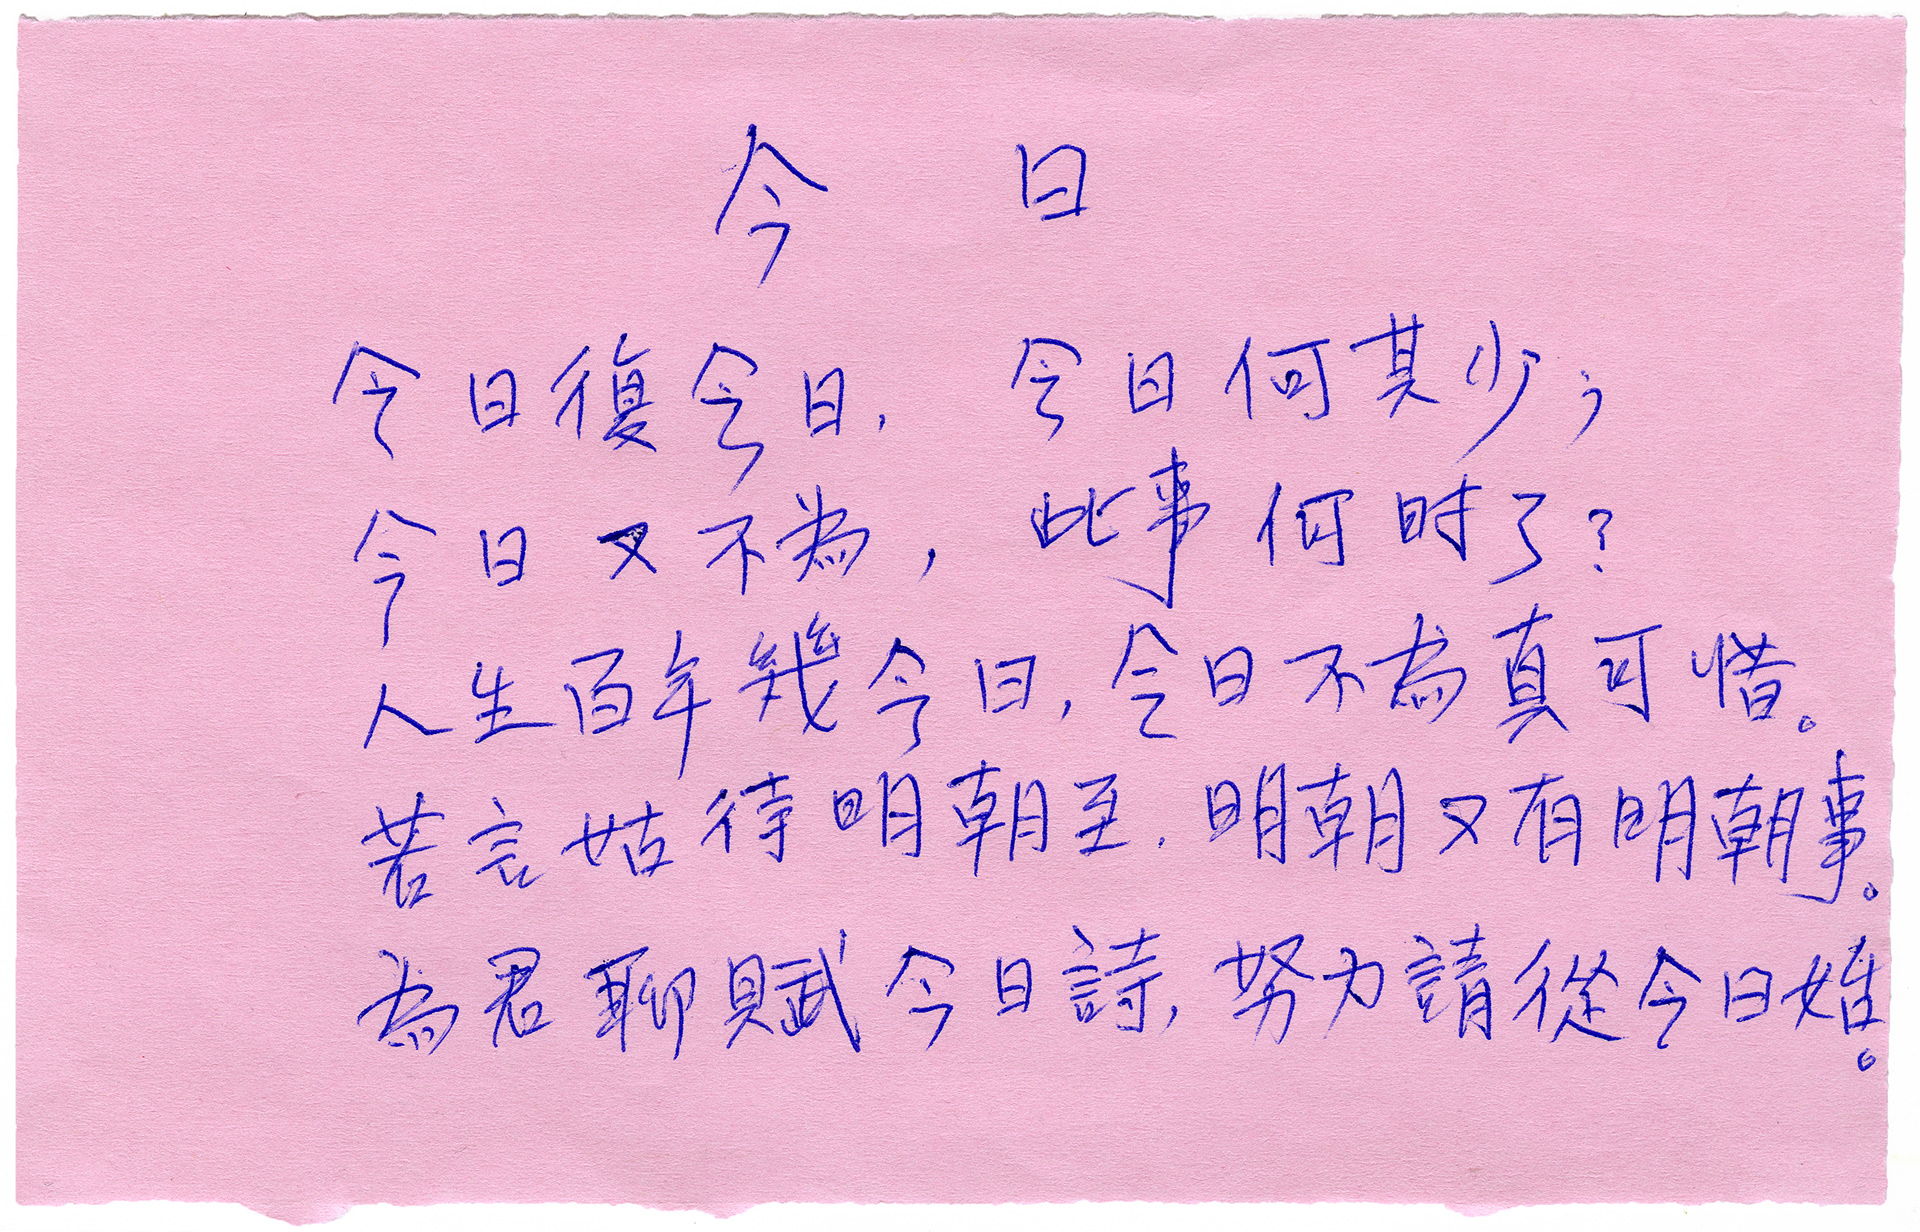 今日
今日復今日，今日何其少；
今日又不為，此事何時了？
人生百年幾今日，今日不為真可惜。
若言姑待明朝至，明朝又有明朝事。
為君聊賦今日詩，努力請從今日始。